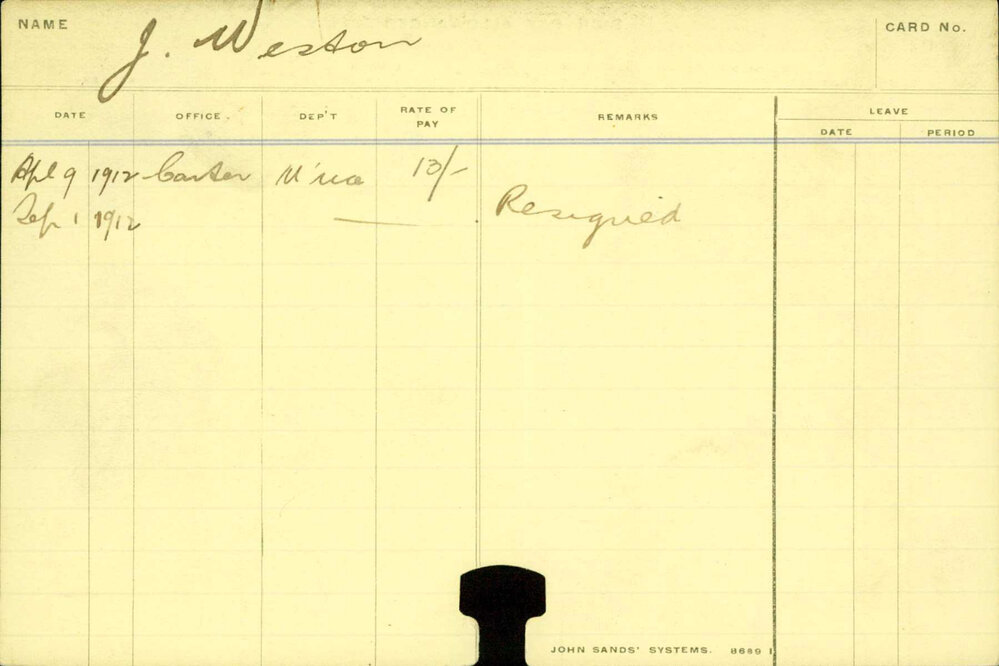 NAME J. Weston CARD No.
DATE OFFICE DEP'T RATE OF PAY REMARKS LEAVE
DATE PERIOD
Apl 9 1912 Carter 13/-
Sep 1 1912 — Resigned
JOHN SANDS' SYSTEMS. 8689